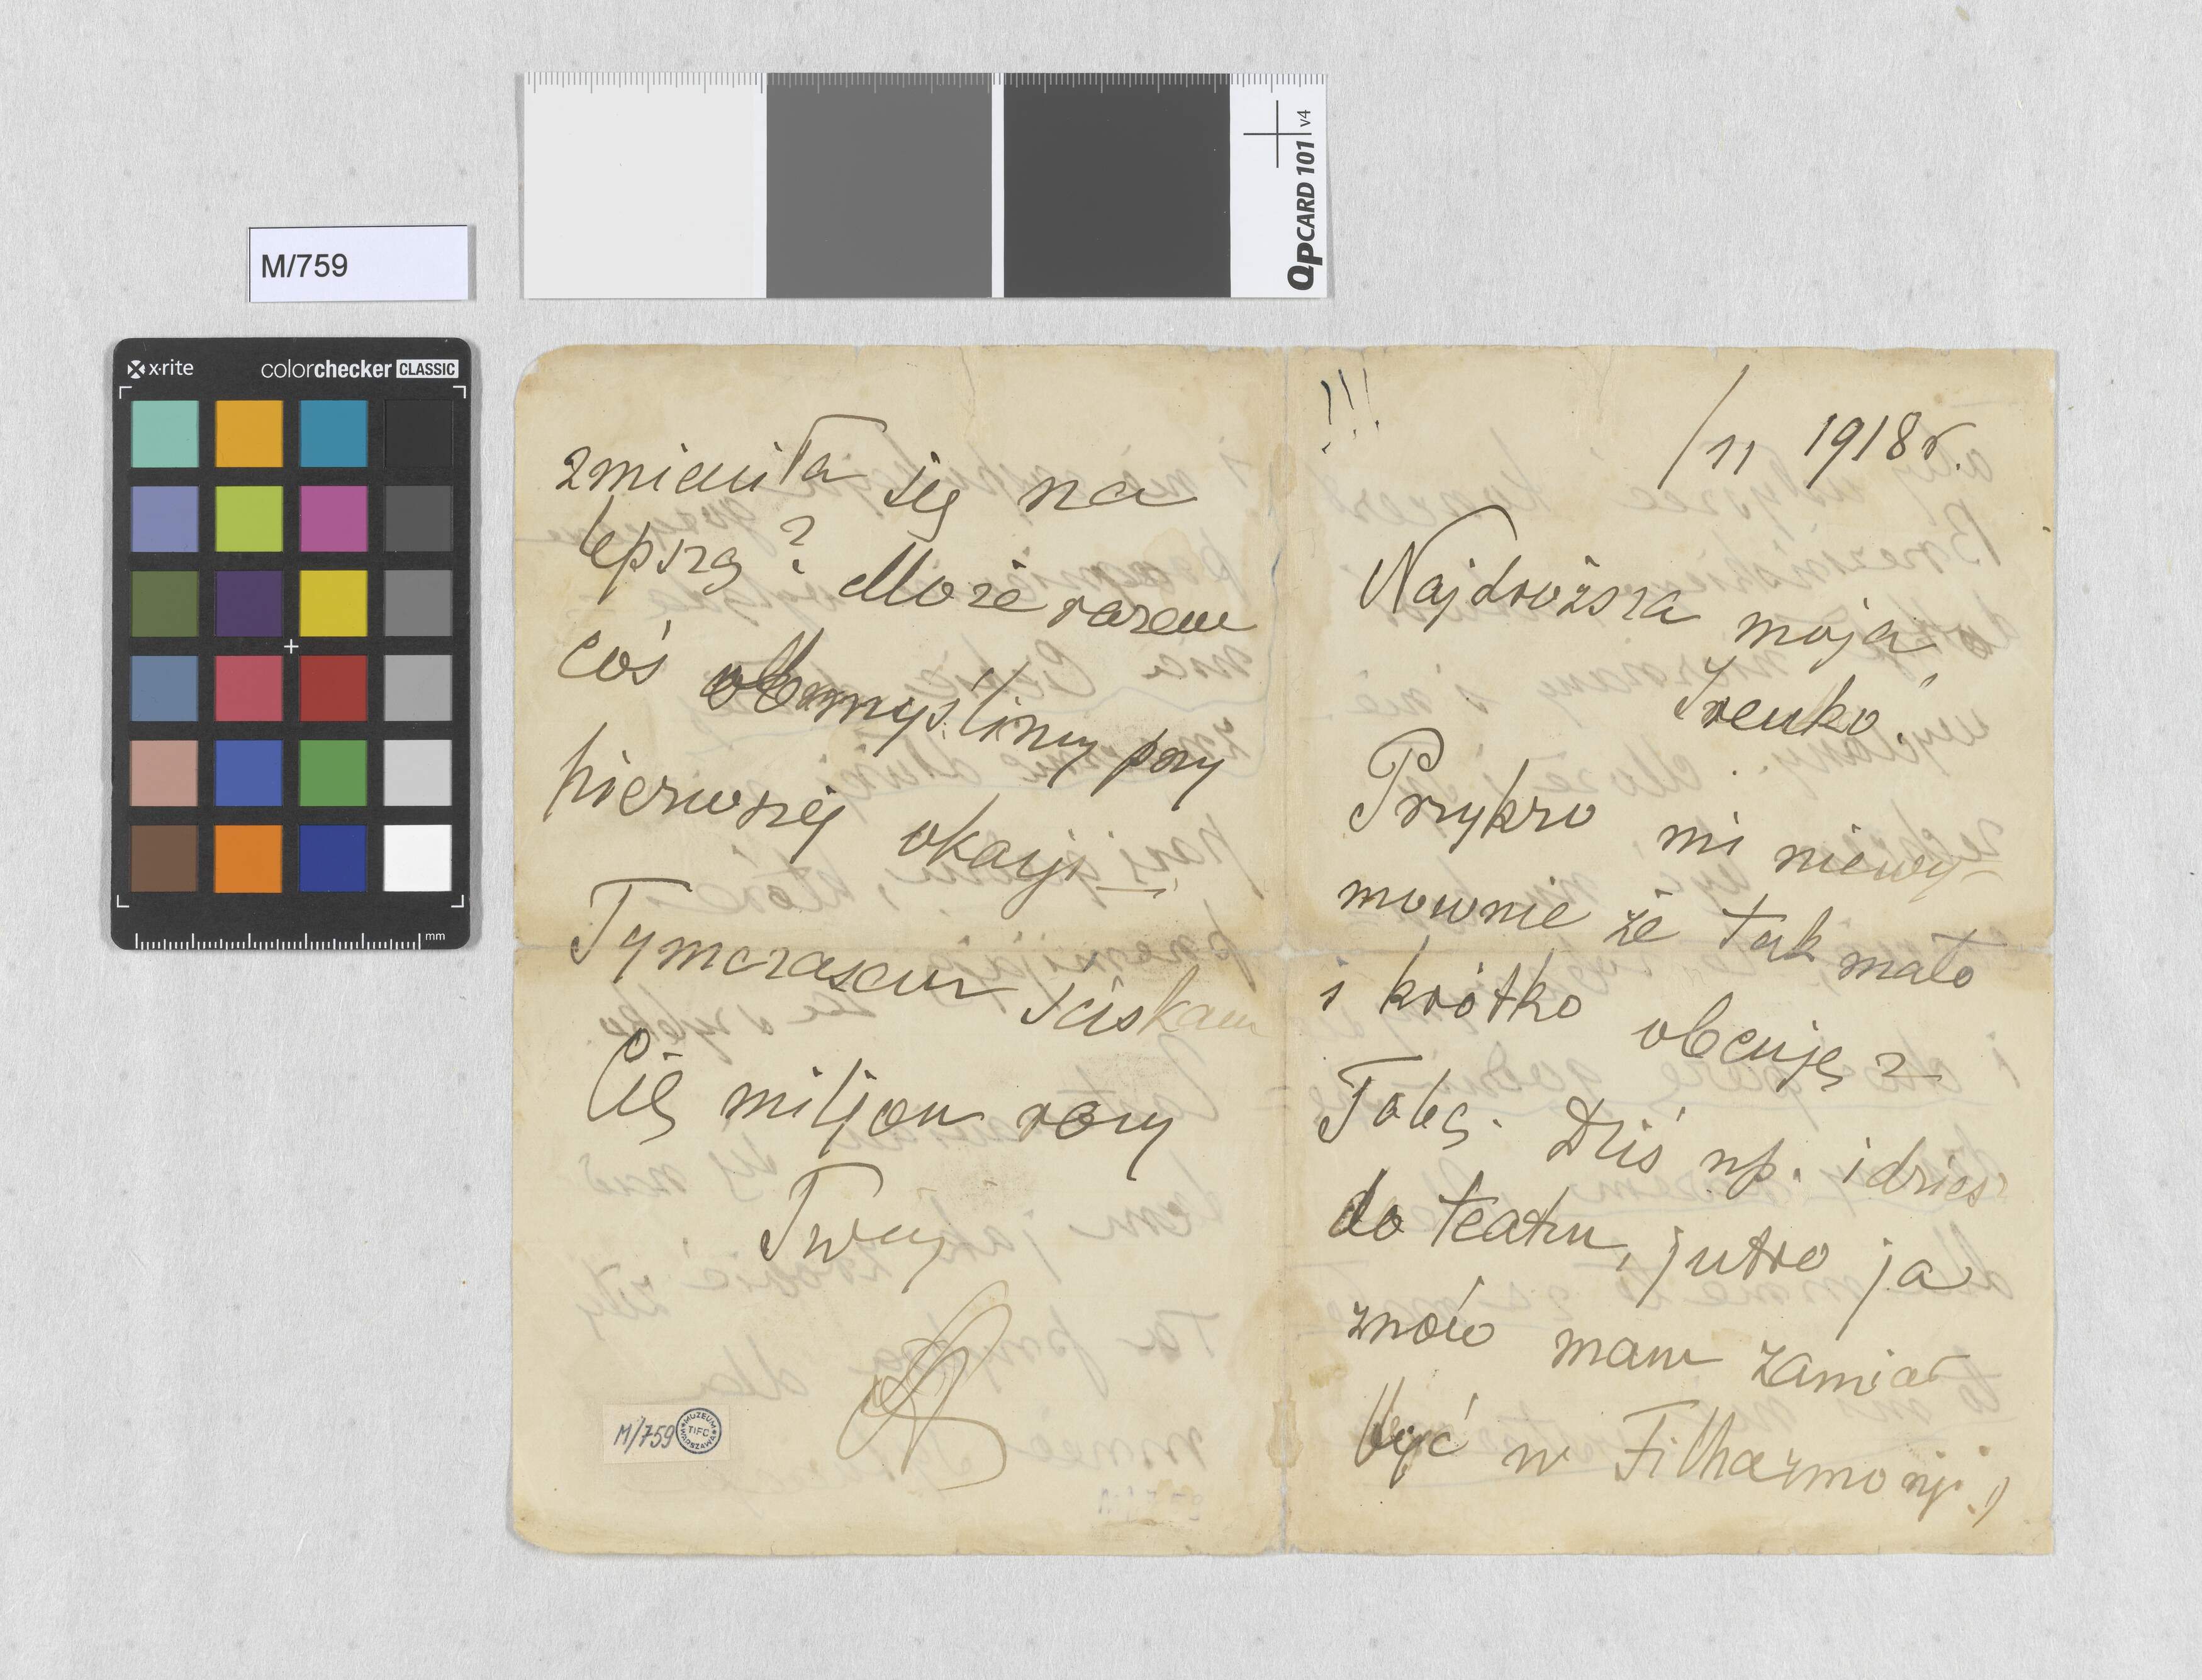 M/759
x·rite colorchecker CLASSIC
mm
QPCARD 101 v4
!!!
/11 1918 r.
Najdroższa moja
Irenko!
Przykro mi niewy-
mownie że tak mało
i krótko obcuję z
Tobą. Dziś np. idziesz
do teatru, jutro ja
znów mam zamiar
być w Filharmonji,
zmieniła się na
lepszą? Może razem
coś obmyślimy przy
pierwszej okazji –
Tymczasem ściskam
Cię miljon razy
Twój
M/759
MUZEUM TIFC WARSZAWA